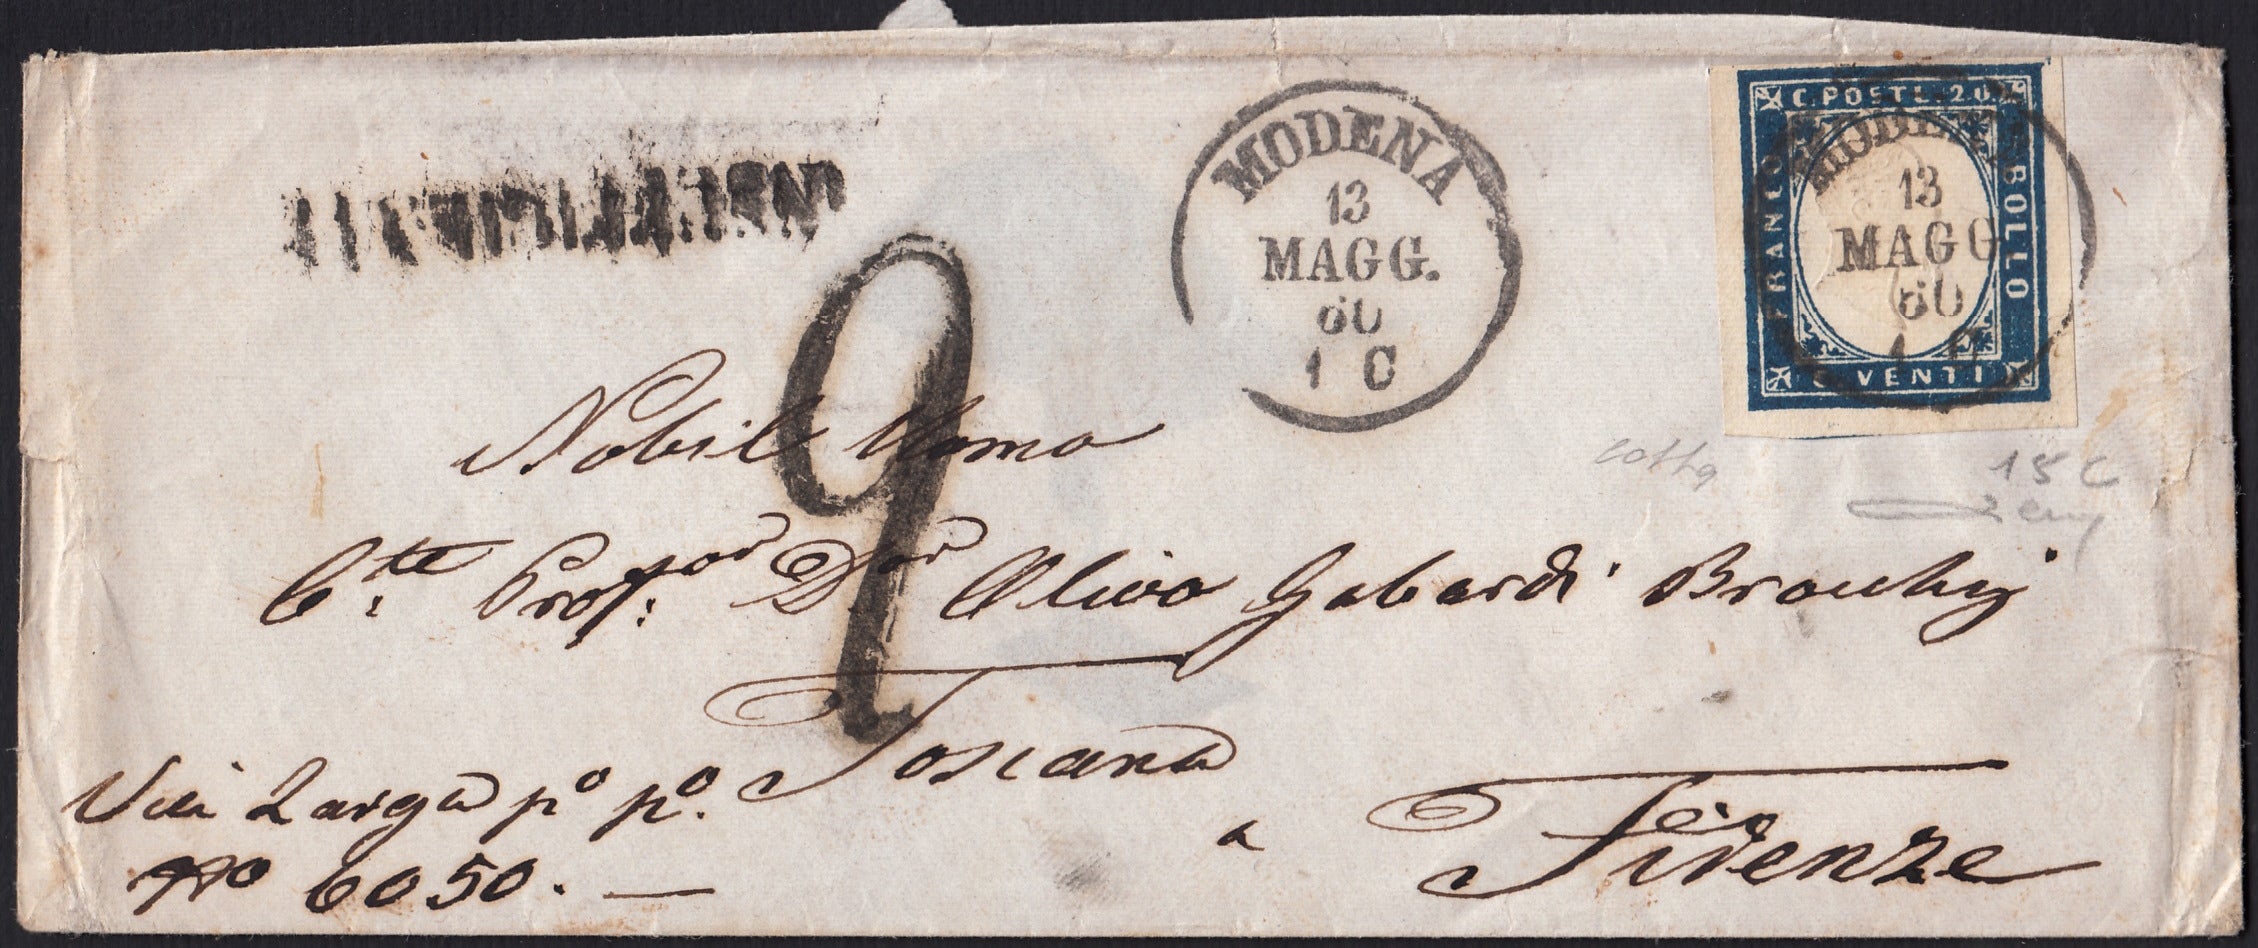 MODENA
13
MAGG.
60
1 C
C. POSTE 20
FRANCO
BOLLO
C. VENTI
MODENA
13
MAGG
60
1 C
9
15 C
Nobil Uomo
C.te Prof.sor D.or Olivo Gabardi
Toscana
Via Larga po po.
No 6050. —
a Firenze